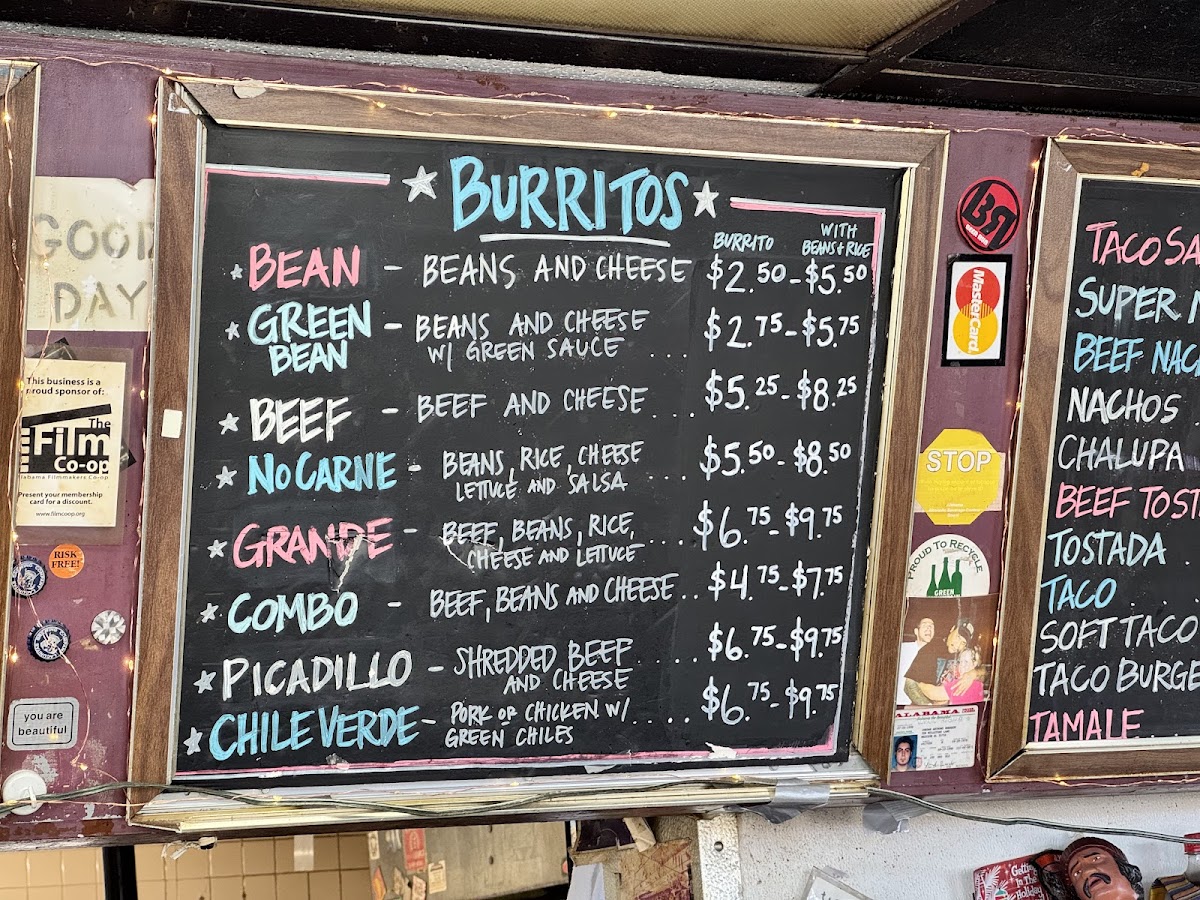 GOOD
DAY
This business is a
proud sponsor of:
The
Film
Co-op
Alabama Filmmakers Co-op
Present your membership
card for a discount.
www.filmcoop.org
RISK
FREE!
you are
beautiful
★ BURRITOS ★
BURRITO WITH BEANS + RICE
★ BEAN - BEANS AND CHEESE $2.50 - $5.50
★ GREEN BEAN - BEANS AND CHEESE
W/ GREEN SAUCE .... $2.75 - $5.75
★ BEEF - BEEF AND CHEESE .... $5.25 - $8.25
★ NO CARNE - BEANS, RICE, CHEESE
LETTUCE AND SALSA ... $5.50 - $8.50
★ GRANDE - BEEF, BEANS, RICE,
CHEESE AND LETTUCE .... $6.75 - $9.75
★ COMBO - BEEF, BEANS AND CHEESE .. $4.75 - $7.75
★ PICADILLO - SHREDDED BEEF
AND CHEESE ..... $6.75 - $9.75
★ CHILE VERDE - PORK OR CHICKEN W/
GREEN CHILES .... $6.75 - $9.75
MasterCard
STOP
PROUD TO RECYCLE
GREEN
ALABAMA
TACO SA
SUPER
BEEF NAC
NACHOS
CHALUPA
BEEF TOST
TOSTADA .
TACO . .
SOFT TACO
TACO BURGE
TAMALE ..
Getting
In The
Holiday